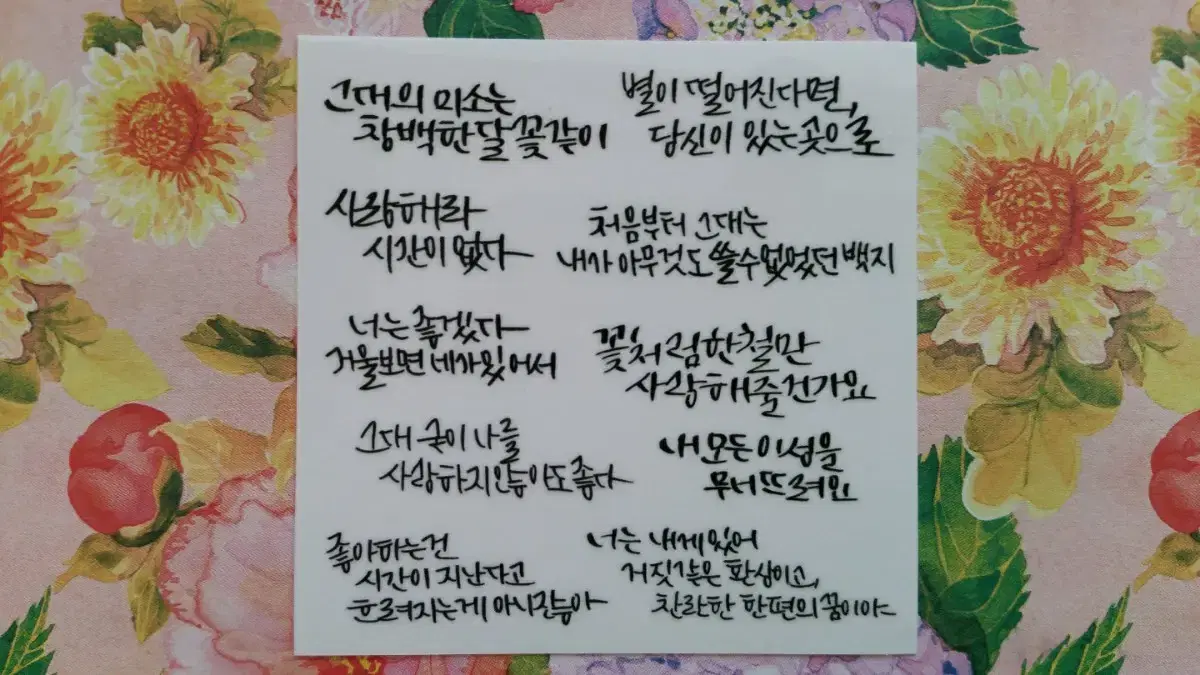 그대의 미소는
창백한 달 꽃 같이
별이 떨어진다면,
당신이 있는 곳으로
사랑해라
시간이 없다
처음부터 그대는
내가 아무것도 쓸 수 없었던 백지
너는 좋겠다
거울보면 네가 있어서
꽃처럼 한철만
사랑해줄건가요
그대 굳이 나를
사랑하지 않아도 좋다
내 모든 이성을
무너뜨려와
좋아하는건
시간이 지난다고
흐려지는게 아니잖아
너는 내게 있어
거짓같은 환상이고,
찬란한 한편의 꿈이야